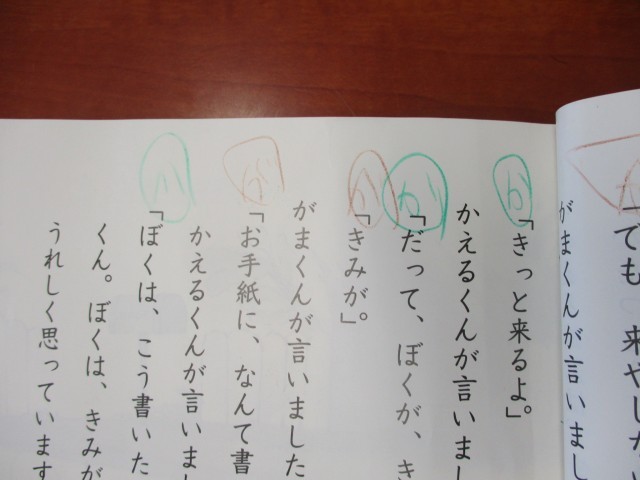 でも 来やしない
がまくんが言いまし
か
「きっと来るよ」。
かえるくんが言いまし
が
「だって、ぼくが、き
か
「きみが。」
がまくんが言いました
が
「お手紙に、なんて書
かえるくんが言いまし
か
「ぼくは、こう書いた
くん。ぼくは、きみが
うれしく思っています